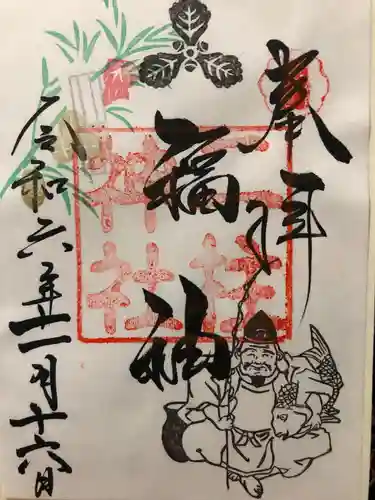 奉拝
福神
令和六年十一月十六日